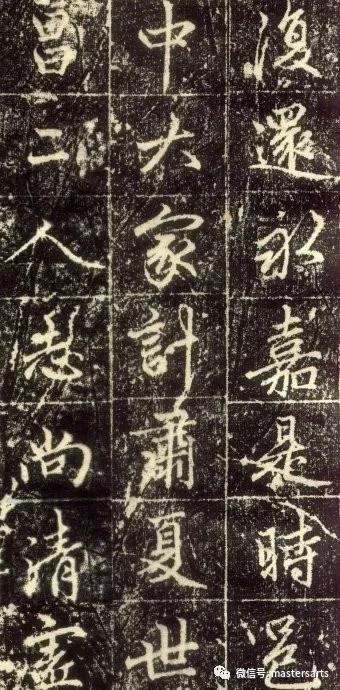 復還永嘉是時邑
中大家計肅夏世
昌二人尚清虛
微信号: mastersarts